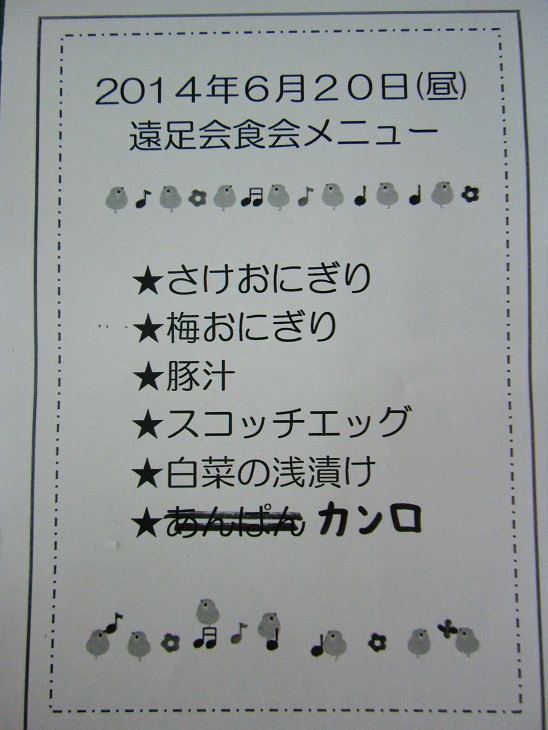 2014年6月20日(昼)
遠足会食会メニュー
★さけおにぎり
★梅おにぎり
★豚汁
★スコッチエッグ
★白菜の浅漬け
★あんぱん カンロ